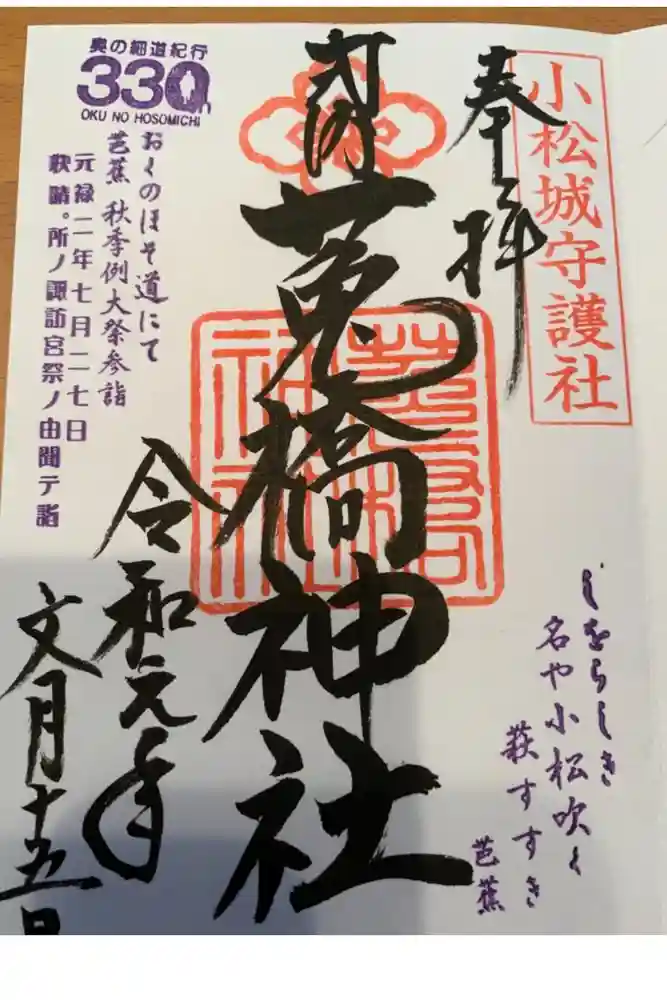 小松城守護社
奉拝
式内
莵橋神社
令和元年
文月十五日
奥の細道紀行
330
OKU NO HOSOMICHI
おくのほそ道にて
芭蕉 秋季例大祭参詣
元禄二年七月二七日
快晴。所ノ諏訪宮祭ノ由聞テ詣
しをらしき
名や小松吹く
萩すすき
芭蕉